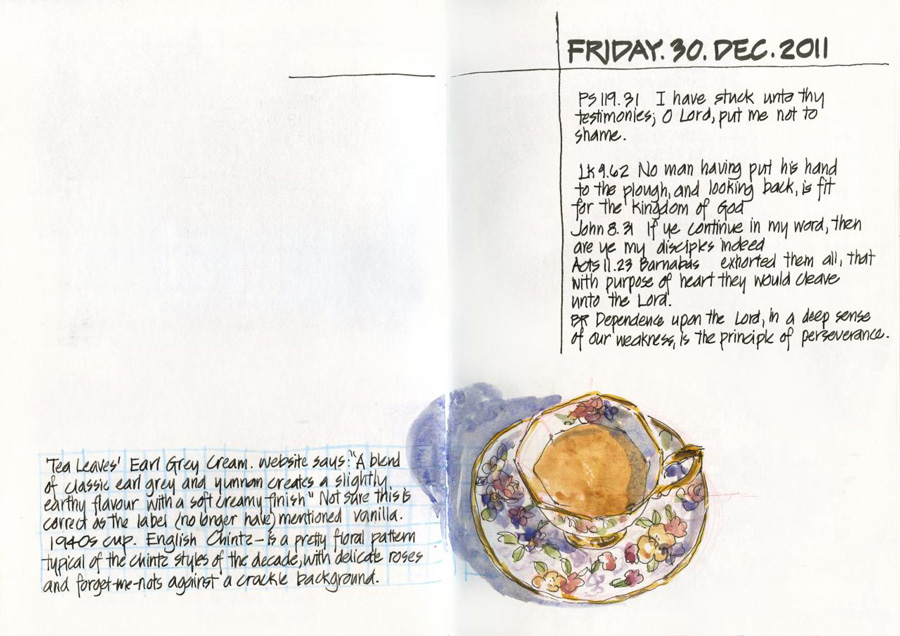 FRIDAY. 30. DEC. 2011
PS 119.31 I have stuck unto thy
testimonies; O Lord, put me not to
shame.
Lk 9.62 No man having put his hand
to the plough, and looking back, is fit
for the kingdom of God
John 8.31 If ye continue in my word, then
are ye my disciples indeed
Acts 11.23 Barnabas exhorted them all, that
with purpose of heart they would cleave
unto the Lord.
BR Dependence upon the Lord, in a deep sense
of our weakness, is the principle of perseverance.
'Tea Leaves' Earl Grey Cream. Website says: "A blend
of classic earl grey and yunnan creates a slightly
earthy flavour with a soft creamy finish" Not sure this is
correct as the label (no longer have) mentioned vanilla.
1940s cup. English Chintz - is a pretty floral pattern
typical of the chintz styles of the decade, with delicate roses
and forget-me-nots against a crackle background.